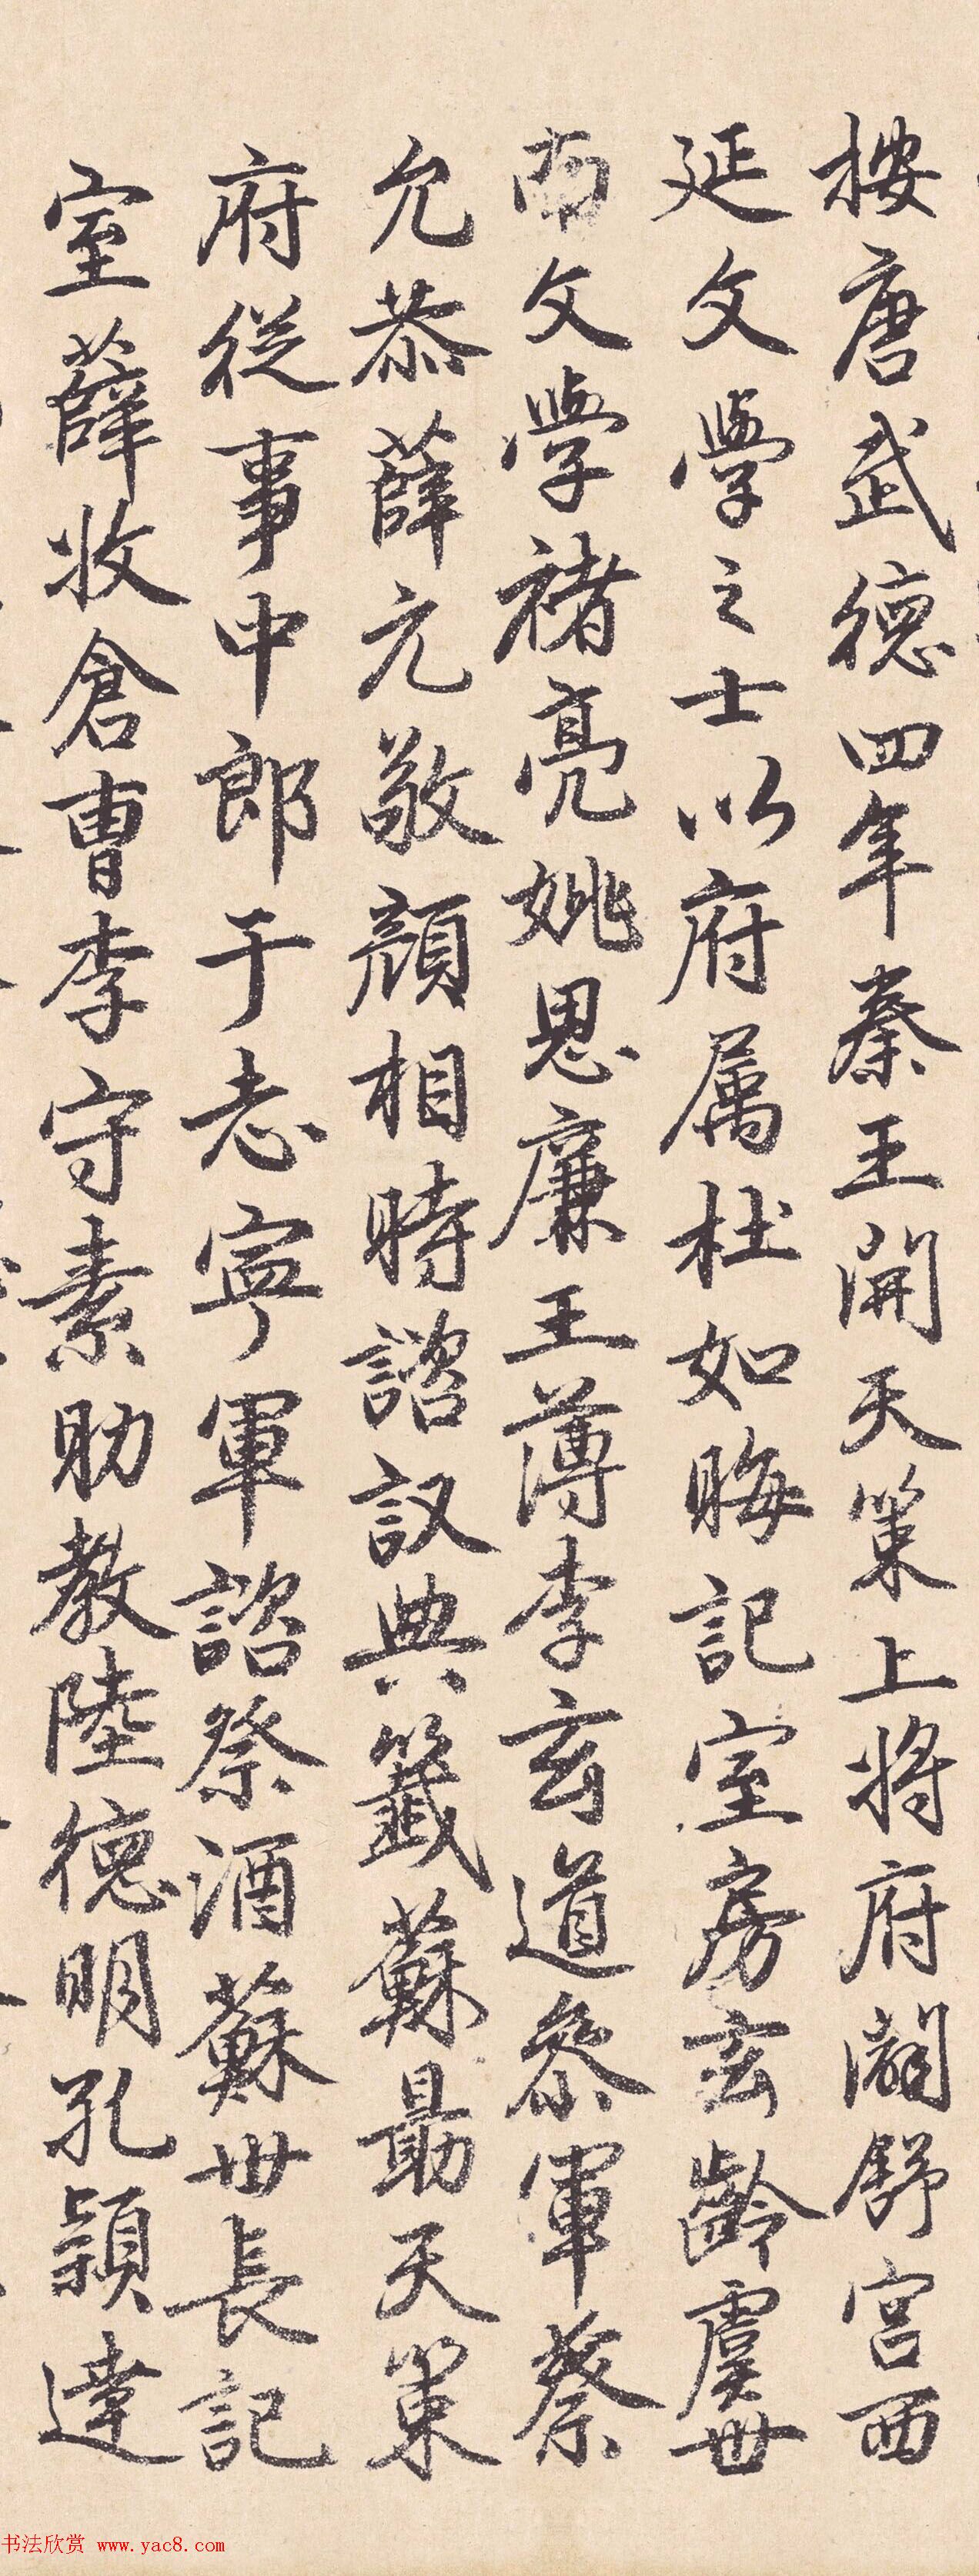 按唐武德四年秦王開天策上將府闢舒宮西
延文學之士以府属杜如晦記室房玄齡虞世
南文學褚亮姚思廉王薄李玄道参軍蔡
允恭薛元敬顔相時諮議典籤蘇勗天策
府從事中郎于志寧軍諮祭酒蘇世長記
室薛收倉曹李守素助教陸德明孔穎達
书法欣赏 www.yac8.com